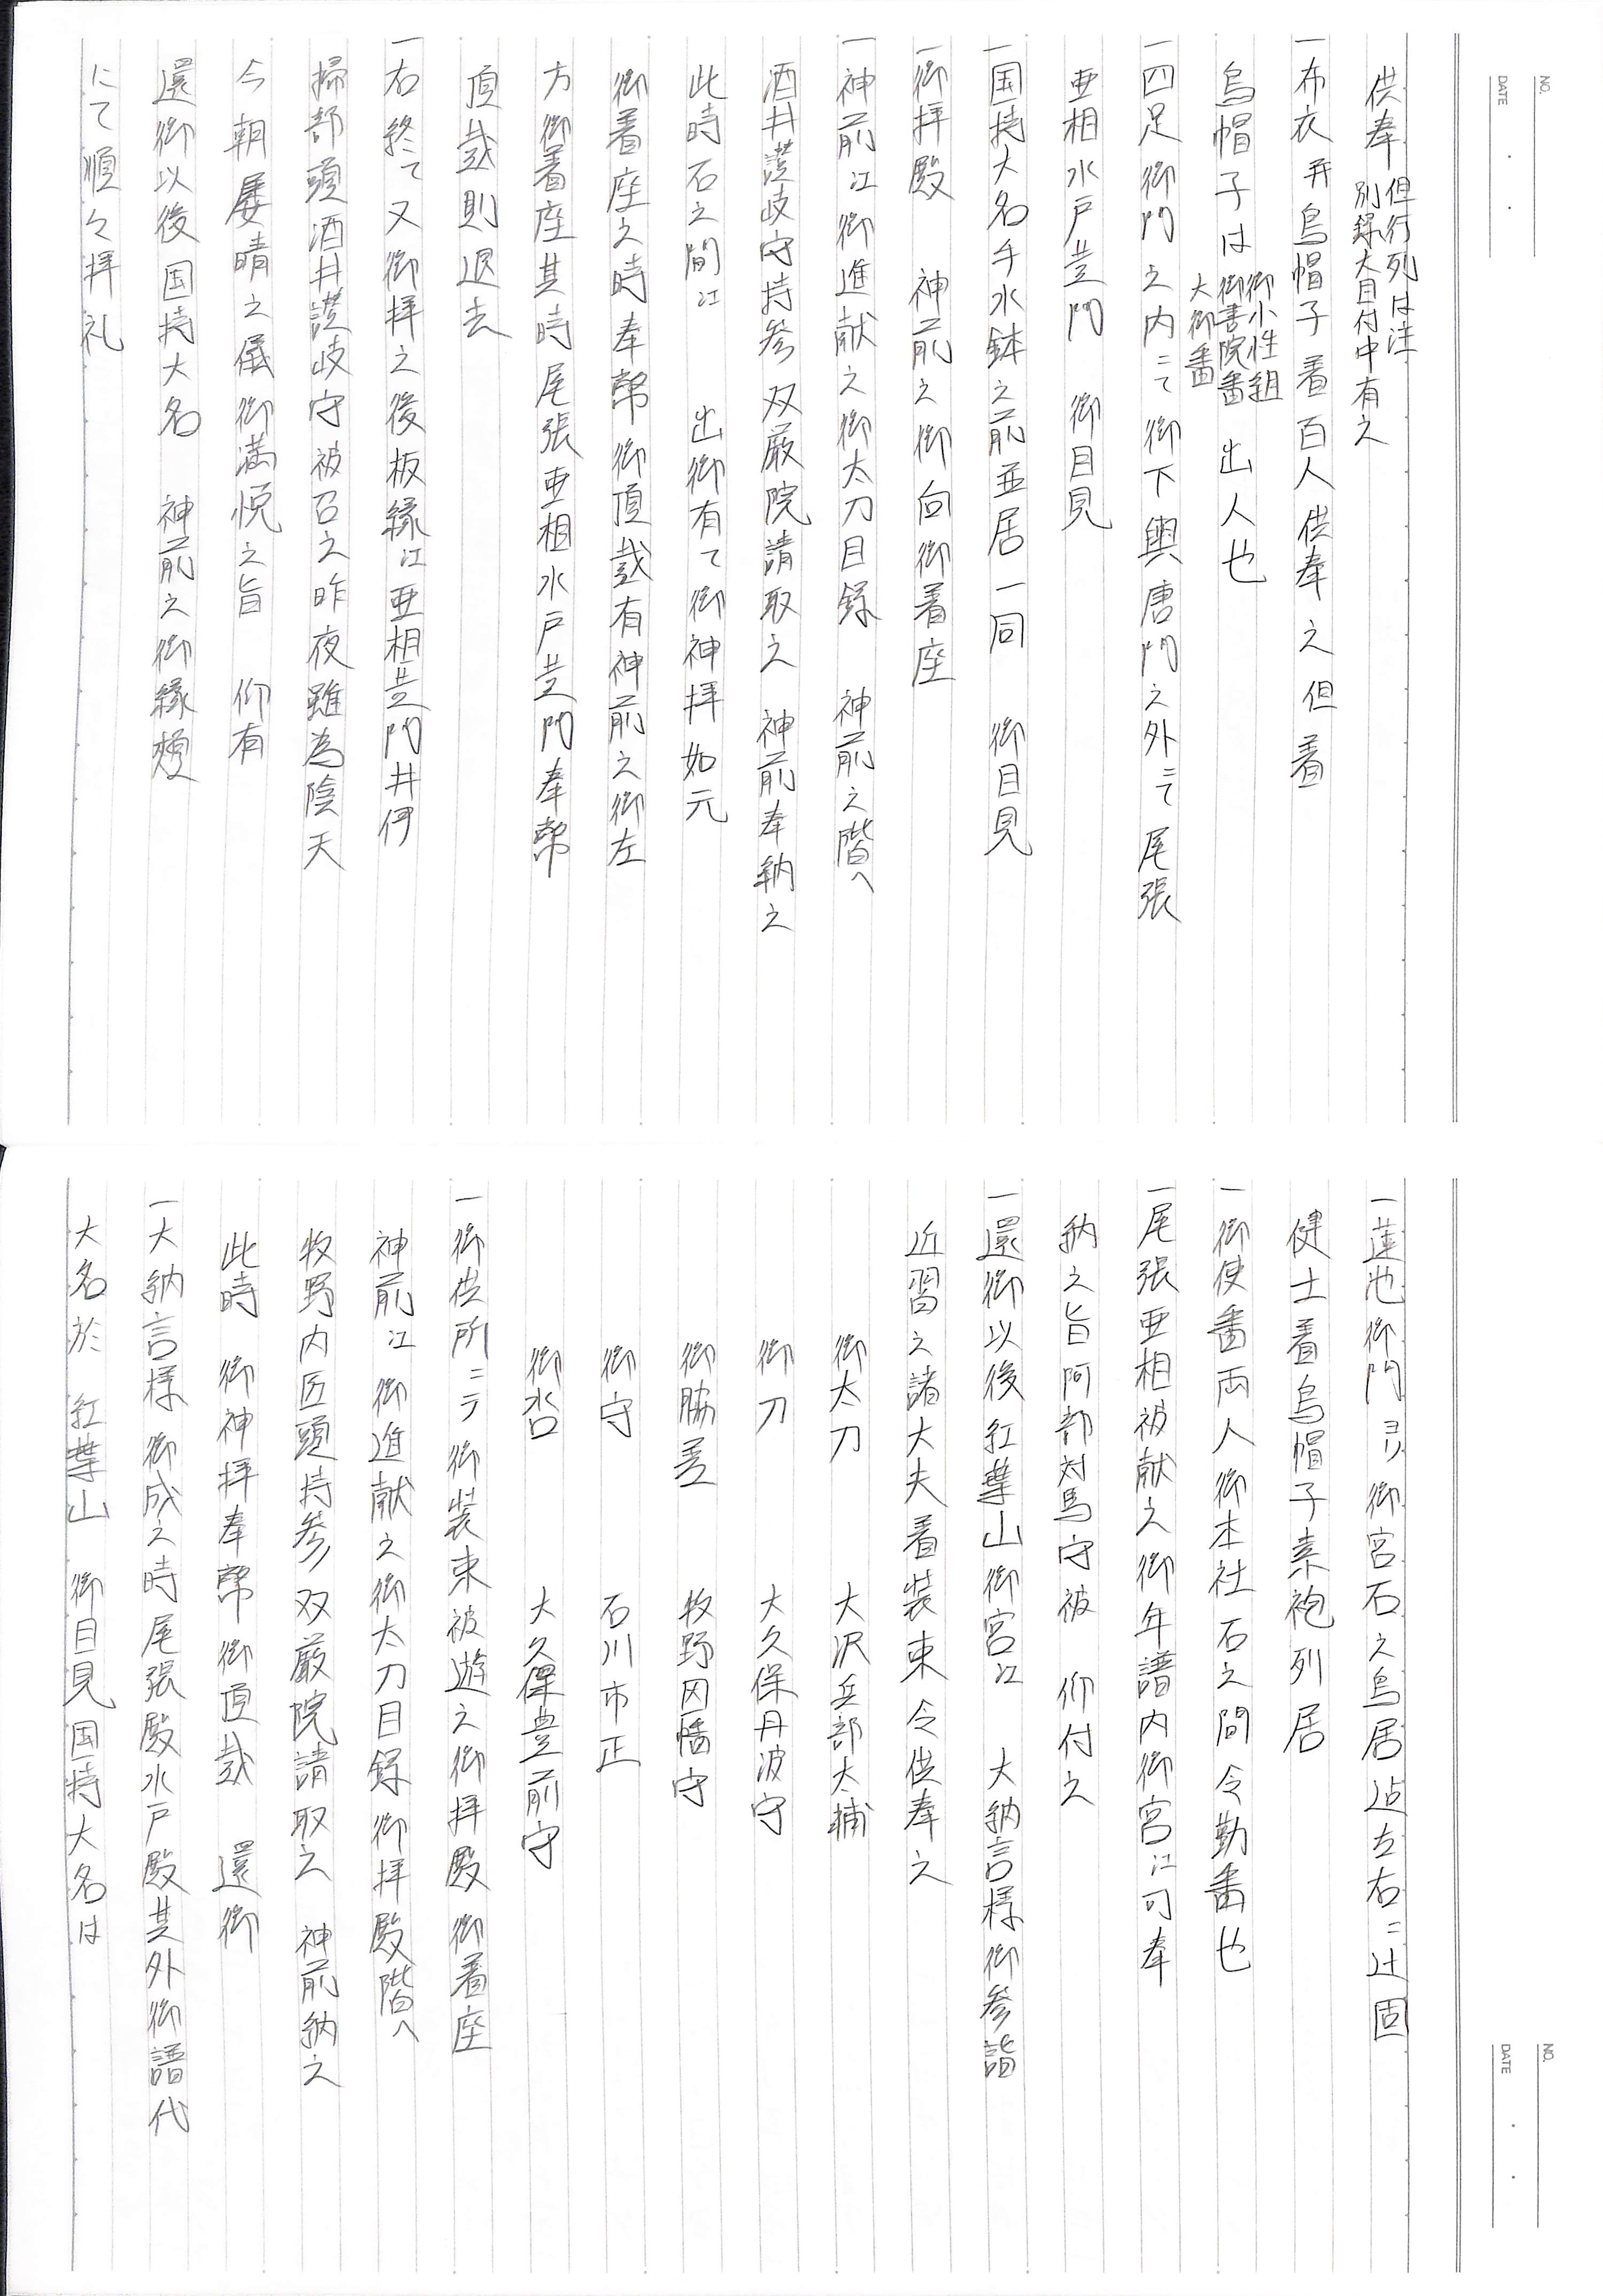 NO.
DATE
供奉 但行列は注
別録大目付中有之
一布衣并烏帽子着百人供奉之但着
烏帽子は 御小性組
御書院番
大御番 出人也
一四足御門之内ニて御下輿唐門之外ニて尾張
亜相水戸黄門 御目見
一国持大名手水鉢之前並居一同 御目見
一御拝殿 神前之御向御着座
一神前江御進献之御太刀目録 神前之階へ
酒井讃岐守持参双厳院請取之 神前奉納之
此時石之間江 出御有て御神拝如元
御着座之時奉幣御頂戴有神前之御左
方御着座其時尾張亜相水戸黄門奉幣
頂戴則退去
一右終て又御拝之後板縁江亜相黄門井伊
掃部頭酒井讃岐守被召之昨夜雖為陰天
今朝屡晴之儀御満悦之旨 仰有
還御以後国持大名 神前之御縁頬
にて順々拝礼
NO.
DATE
一蓮池御門ヨリ御宮石之鳥居迠左右ニ辻固
健士着烏帽子素袍列居
一御使番両人御本社石之間令勤番也
一尾張亜相被献之御年譜内御宮江可奉
納之旨阿部対馬守被 仰付之
一還御以後紅葉山御宮江 大納言様御参詣
近習之諸大夫着装束令供奉之
御太刀 大沢兵部太輔
御刀 大久保丹波守
御脇差 牧野因幡守
御守 石川市正
御沓 大久保豊前守
一御供所ニテ御装束被遊之御拝殿御着座
神前江御進献之御太刀目録御拝殿階へ
牧野内匠頭持参双厳院請取之 神前納之
此時 御神拝奉幣御頂戴 還御
一大納言様御成之時尾張殿水戸殿其外御譜代
大名於 紅葉山 御目見国持大名は